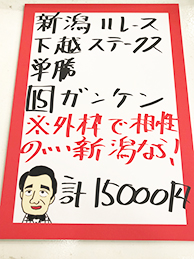 新潟11レース
下越ステークス
単勝
15 ガンケン
※外枠で相性
のいい新潟なら!
計15000円